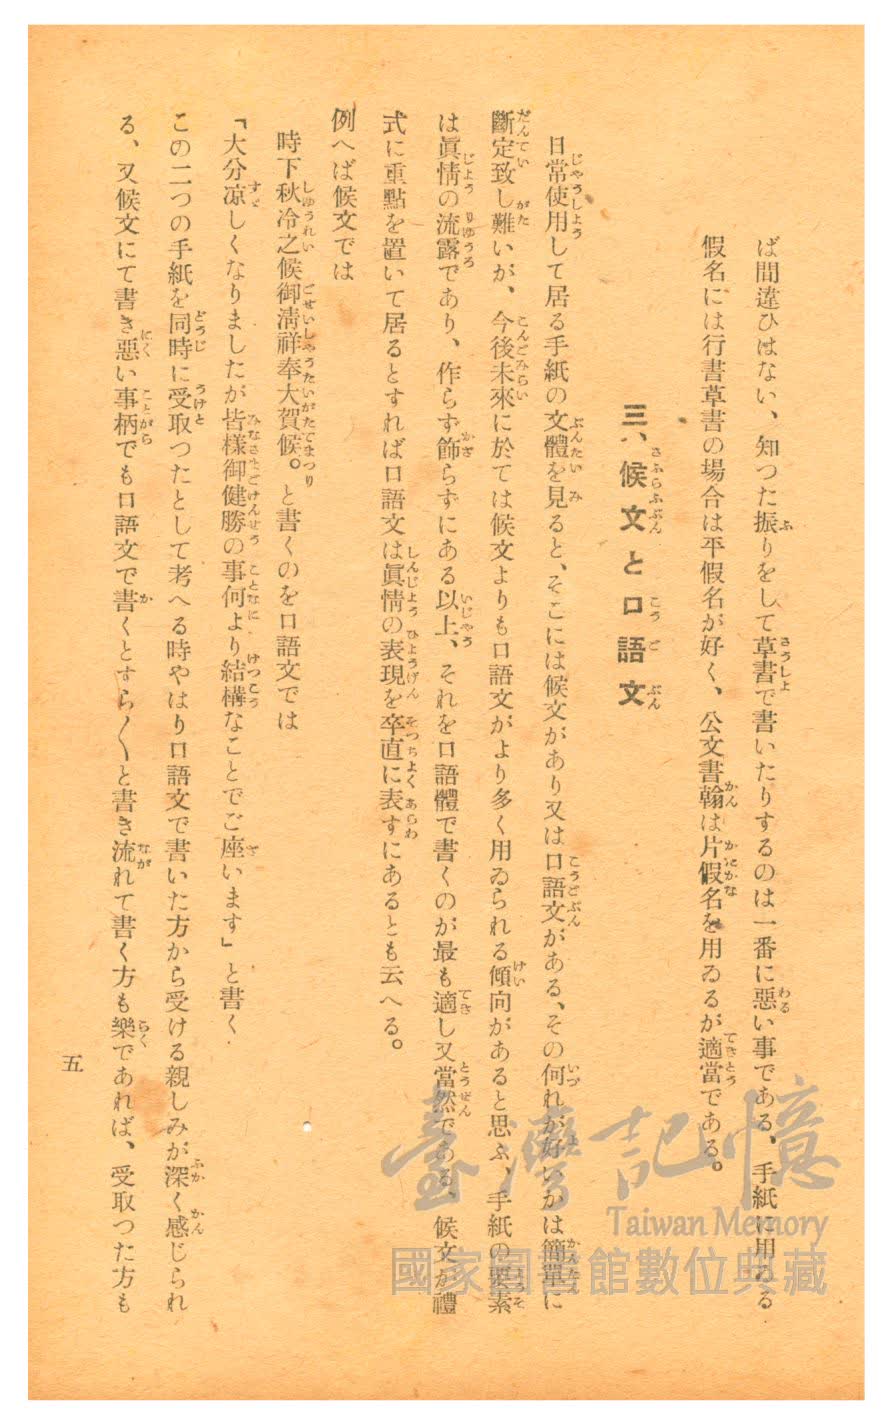 ば間違ひはない、知つた振りをして草書で書いたりするのは一番に惡い事である、手紙に用ゐる
假名には行書草書の場合は平假名が好く、公文書翰は片假名を用ゐるが適當である。
三、候文と口語文
日常使用して居る手紙の文體を見ると、そこには候文があり又は口語文がある、その何れが好いかは簡單に
斷定致し難いが、今後未來に於ては候文よりも口語文がより多く用ゐられる傾向があると思ふ、手紙の要素
は眞情の流露であり、作らず飾らずにある以上、それを口語體で書くのが最も適し又當然である、候文が禮
式に重點を置いて居るとすれば口語文は眞情の表現を卒直に表すにあるとも云へる。
例へば候文では
時下秋冷之候御淸祥奉大賀候。と書くのを口語文では
「大分凉しくなりましたが皆樣御健勝の事何より結構なことでご座います」と書く.
この二つの手紙を同時に受取つたとして考へる時やはり口語文で書いた方から受ける親しみが深く感じられ
る、又候文にて書き惡い事柄でも口語文で書くとすら〱と書き流れて書く方も樂であれば、受取つた方も
五
臺灣記憶
Taiwan Memory
國家圖書館數位典藏